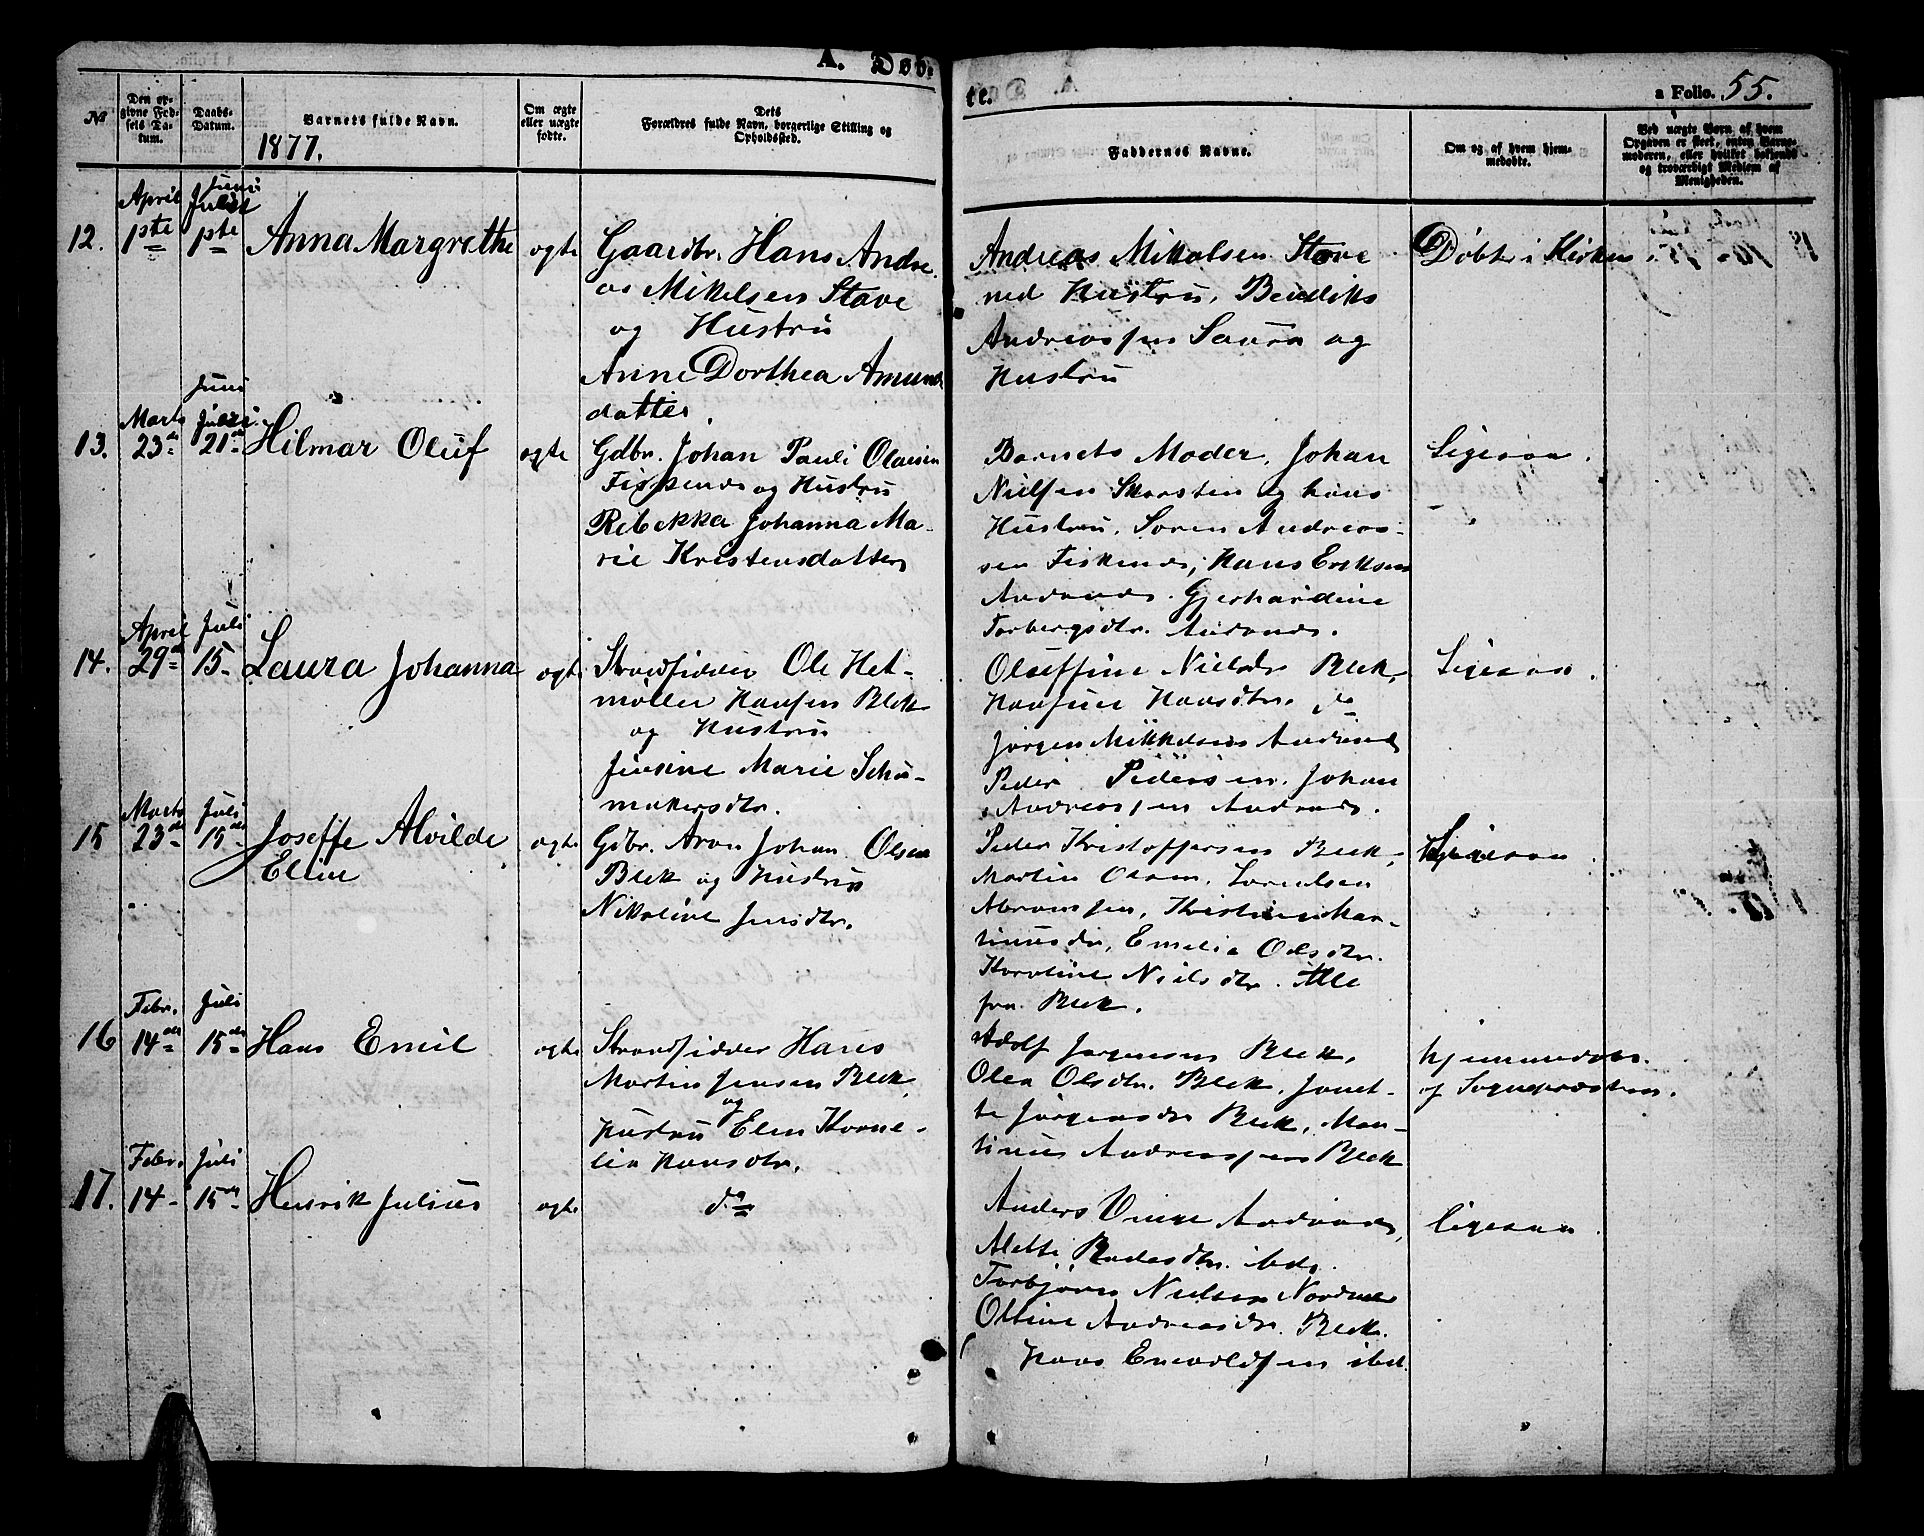 A. Døb-
te.
a Folio. 55.
№
Den op-
givne Fød-
sels Da-
tum.
Daabs-
Datum.
Barnets fulde Navn.
1877.
Om ægte
eller uægte
fødte.
Dets
Forældres fulde Navn, borgerlige Stilling og
Opholdssted.
Faddernes Navne.
Om og af hvem hjem-
medøbte.
Ved uægte Børn af hvem
Opgaven er skeet, enten Barne-
moderen, eller hvilket bekjendt
og troværdigt Medlem af
Menigheden.
12.
April
1ste
Juni
1ste
Anna Margrethe
ægte
Gaardbr. Hans Andre
as Mikelsen Stave
og Hustru
Anne Dorthea Amund
datter.
Andreas Mikalsen Stave
med Hustru, Bendiks
Andreassen Saura og
Hustru
Døbt i Kirken
13.
Marts
23de
Juni
21de
Hilmar Oluf
ægte
Gdbr. Johan Pauli Olaisen
Fiskenes og Hustru
Rebekka Johanna Ma-
rie Kristensdatter
Barnets Moder, Johan
Nielsen Skarsten og hans
Hustru, Søren Andreas-
sen Fiskenes, Hans Eriksen
Andenes. Gjerhardine
Torbergsdtr. Andenes.
Ligesaa.
14.
April
29de
Juli
15
Laura Johanna
ægte
Strandsidder Ole Het-
møller Hansen Blek
og Hustru
Jensine Marie Schu-
makersdtr.
Oluffine Nielsdr Blek,
Hansine Hansdtr. do
Jørgen Mikkelsen Andenes
Peder Pedersen, Johan
Andreassen Andenes.
Ligesaa.
15
Marts
23de
Juli
15de
Joseffe Alvilde
Eline
ægte
Gdbr. Aron Johan Olsen
Blek og Hustru
Nikoline Jensdtr.
Peder Kristoffersen Blek,
Martin Olsen, Lorentsen
Abramsen, Kristine Mar-
tinusdr, Emelie Olsdtr.
Karoline Nielsdtr. Alle
fra Blek.
Ligesaa.
16
Febr.
14de
Juli
15de
Hans Emil
ægte
Strandsidder Hans
Martin Jensen Blek
og
Hustru Elen Korne-
lia Hansdtr.
Adolf Jørgensen Blek,
Olea Olsdtr. Blek, Janet-
te Jørgensdr Blek, Mar-
tinus Andreassen Blek
hjemmedøbt
af Sognepræsten.
17.
Febr.
14
Juli
15de
Henrik Julius
ægte
do
Anders Vinge Andenes,
Alette ibds.
Torbjørn Nielsen Nordmel
Oline Andreasdr. Blek.
Hans Enevoldsen ibd.
ligesaa.